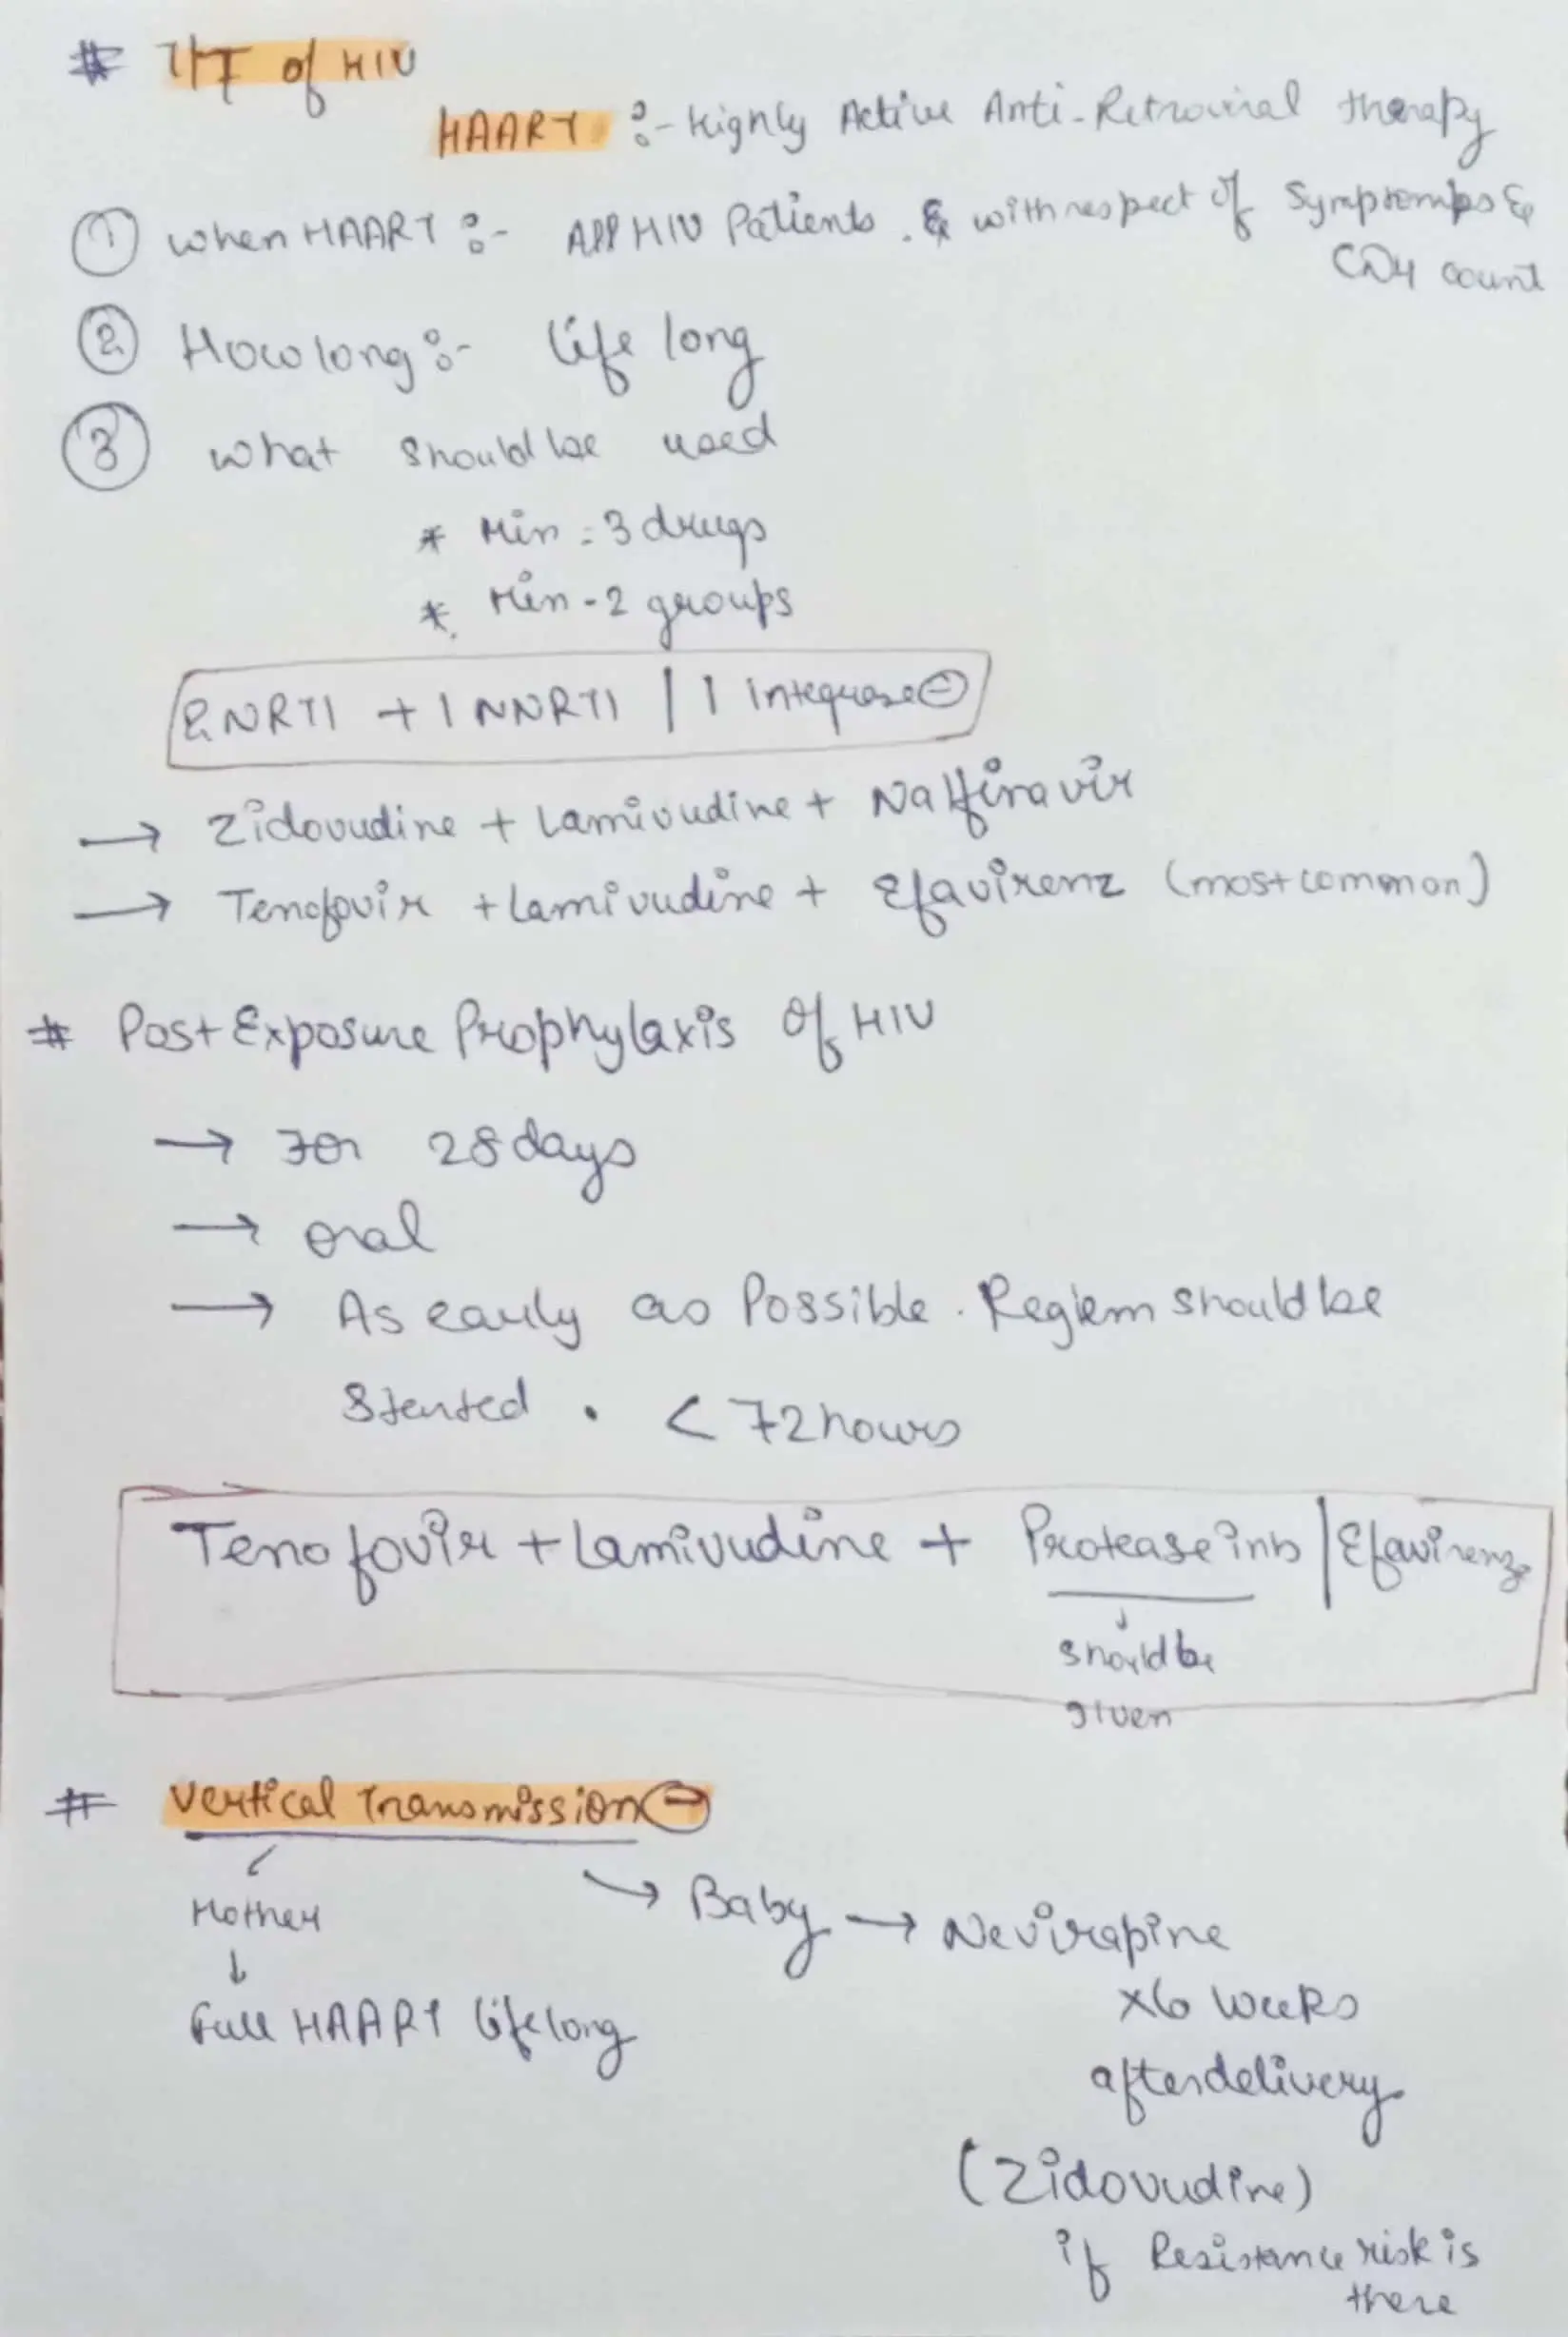 # T/T of HIV
HAART :- Highly Active Anti-Retroviral therapy
① when HAART :- All HIV Patients. & with respect of Symptomps &
CD4 count
② How long :- life long
③ what should be used
* Min = 3 drugs
* Min - 2 groups
2 NRTI + 1 NNRTI | 1 integrase ⊖
→ Zidovudine + Lamivudine + Nalfinavir
→ Tenofovir + Lamivudine + Efavirenz (most common)
# Post Exposure Prophylaxis of HIV
→ For 28 days
→ oral
→ As early as Possible. Regiem should be
started. < 72 hours
Tenofovir + Lamivudine + Protease inb | Efavirenz
↓
should be
given
# Vertical Transmission ⊖
Mother
↓
Full HAART lifelong
→ Baby → Nevirapine
x6 weeks
after delivery
(Zidovudine)
if Resistance risk is
there